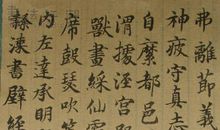 弗離節義
神疲守真志
自縻都邑
渭據涇宮殿
獸畫綵仙靈
席鼓瑟吹笙
內左達承明
漆書壁經